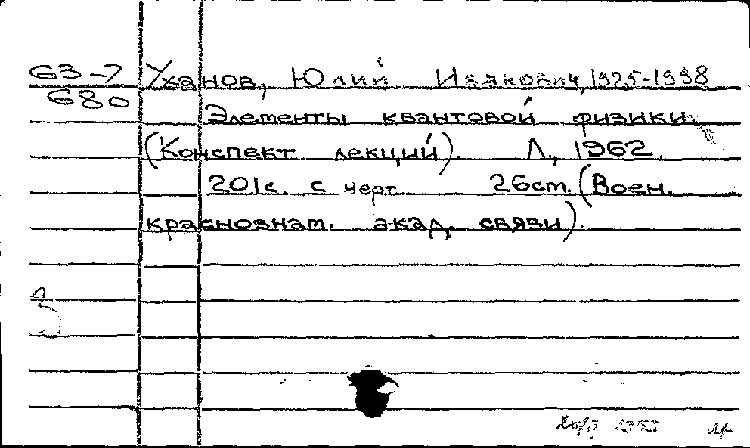 63-7 Уханов, Юлий Иванович, 1925-1998
680 Элементы квантовой физики.
(Конспект лекций). Л., 1962.
201с. с черт. 26см. (Воен.
краснознам. акад. связи).